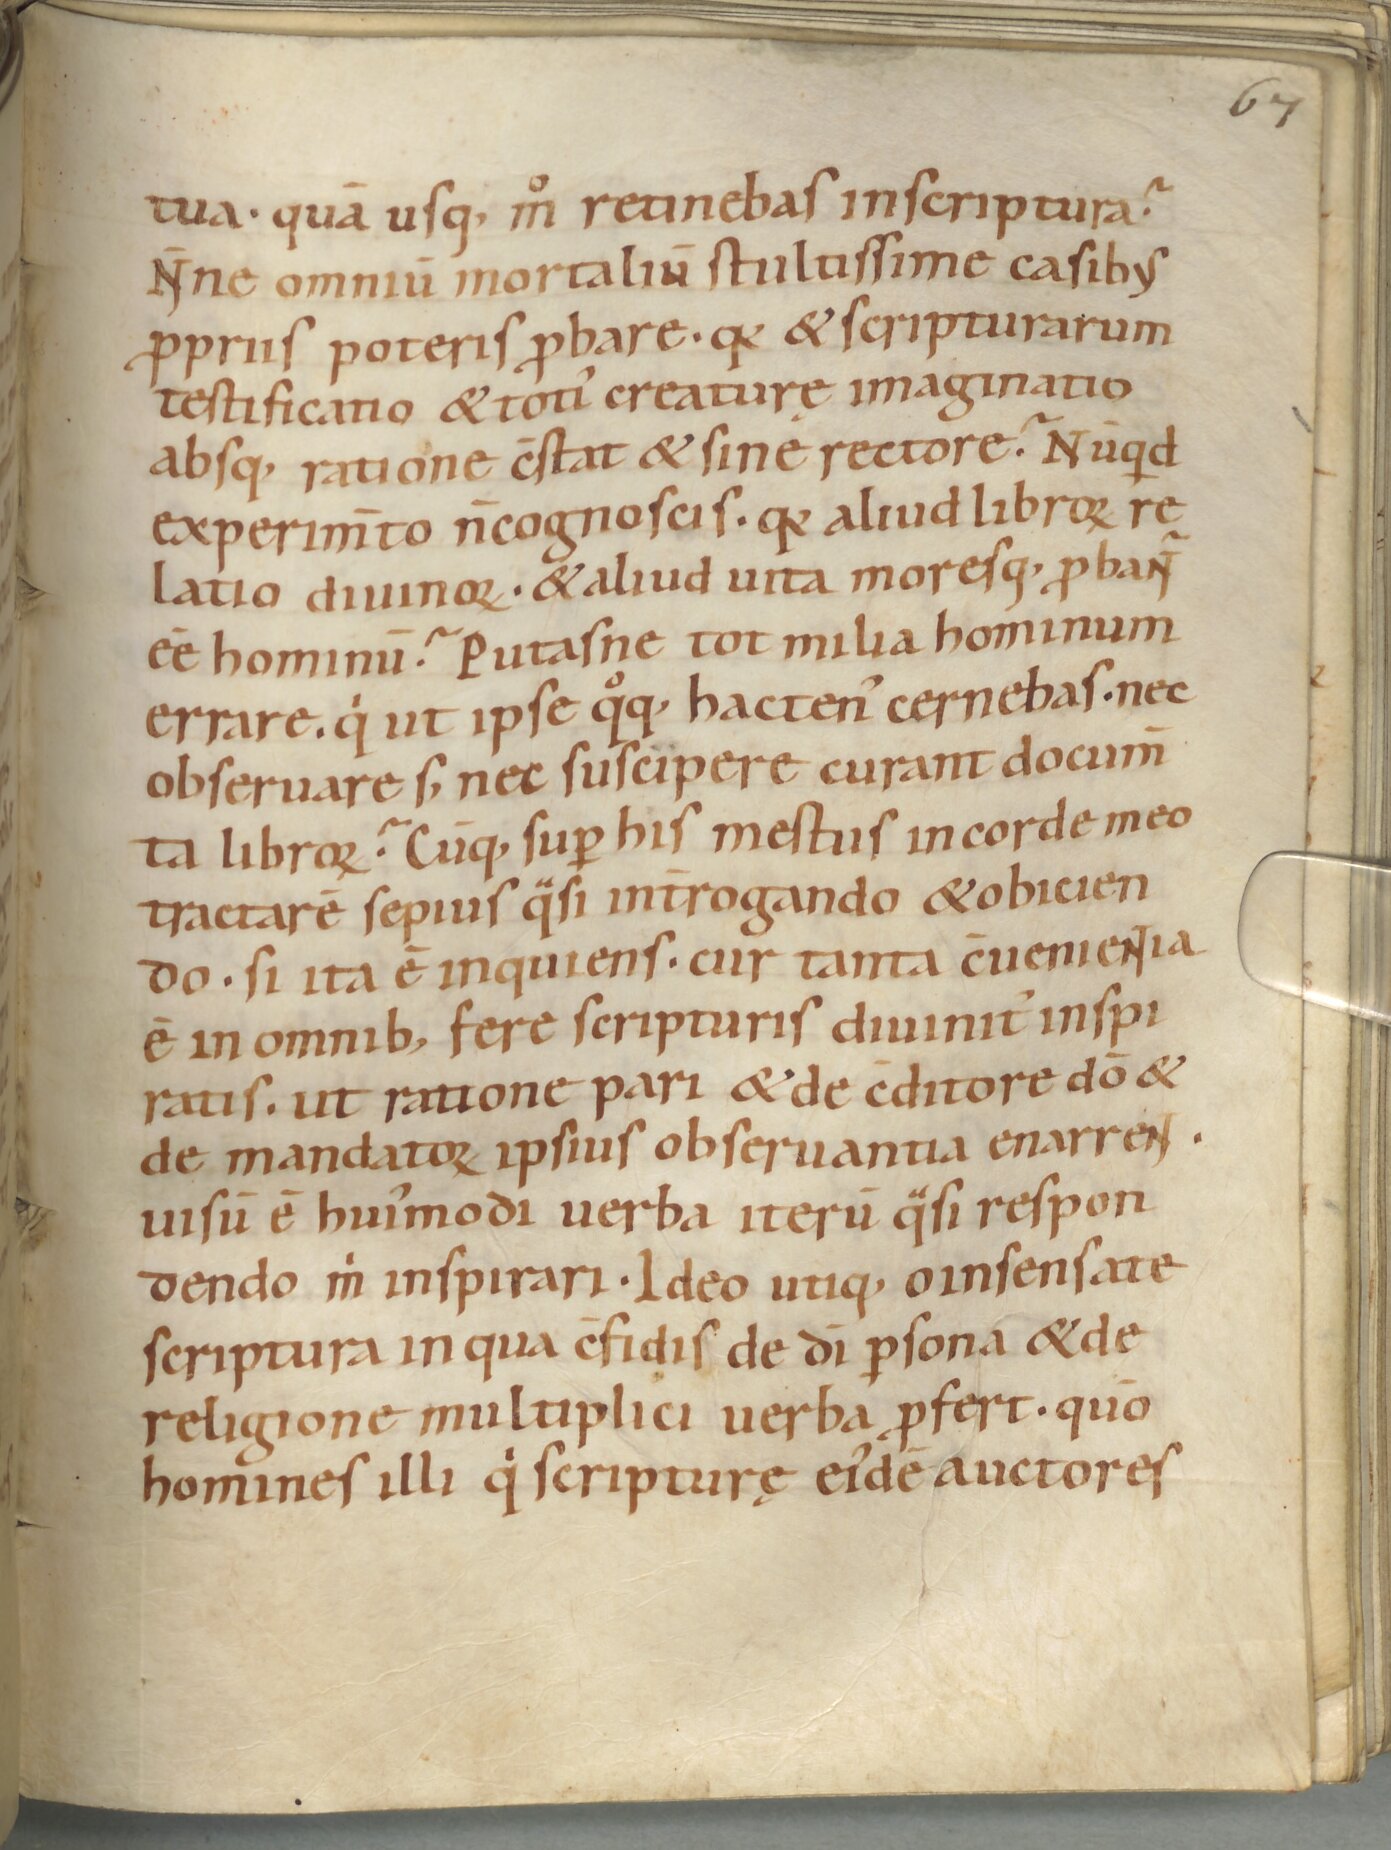 67
tua· quā usq, m̊ retinebas in scriptura?
N̄ne omniū mortaliū stultissime casibꝰ
ꝓpriis poteris ꝓbare· qꝛ & scripturarum
testificatio & totiꝰ creaturę imaginatio
absq, ratione c̄stat & sine rectore? Nūqͥd
experim̄to n̄ cognoscis· qꝛ aliud libroꝝ re
latio diuinoꝝ· & aliud uita moresq, ꝓbant᷑
eē hominū? Putasne tot milia hominum
errare· qͥ ut ipse qͦq, hactenꝰ cernebas· nec
obseruare s, nec suscipere curant docum̄
ta libroꝝ? Cūq, suꝑ his mestus in corde meo
tractarē sepius qᷓsi int̄rogando & obicien
do· si ita ē inquiens· cur tanta c̄uenientia
ē in omnib, fere scripturis diuinitꝰ inspi
ratis· ut ratione pari & de c̄ditore dō &
de mandatoꝝ ipsius obseruantia enarrent·
uisū ē huiꝰmodi uerba iterū qᷓsi respon
dendo mͥ inspirari· Ideo utiq, o insensate
scriptura in qua c̄fidis de dī ꝑsona & de
religione multiplici uerba ꝓfert· quō
homines illi qͥ scripturę eiꝰdē auctores